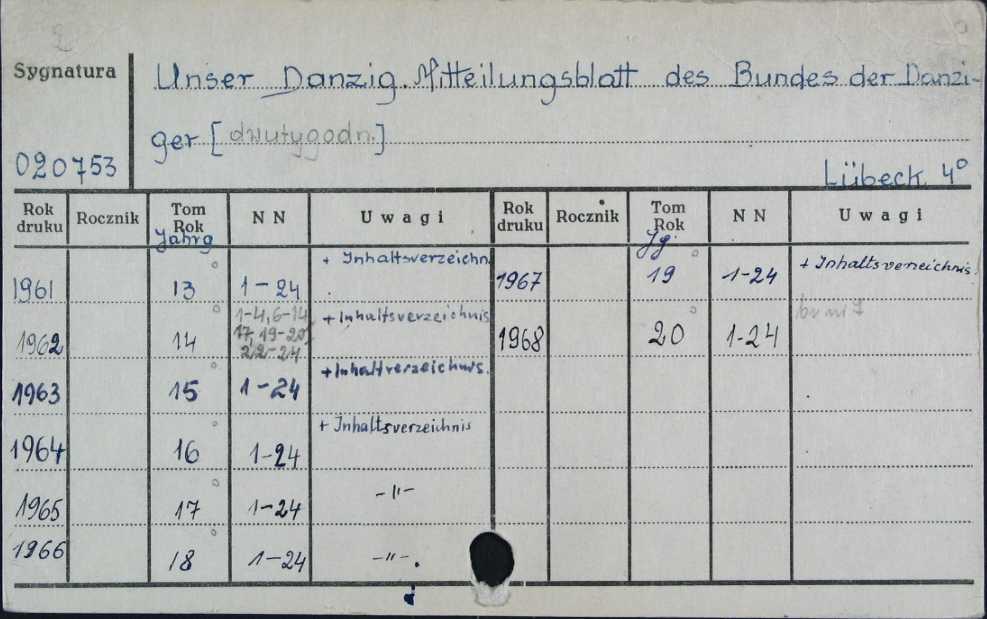 Sygnatura
Unser Danzig. Mitteilungsblatt des Bundes der Danzi-
ger [dwutygodn.]
020753
Lübeck. 4°
Rok druku Rocznik Tom Rok N N Uwagi Rok druku Rocznik Tom Rok N N Uwagi
Jahrg Jg.
1961 13 1-24 + Inhaltsverzeichn. 1967 19 1-24 + Inhaltsverzeichnis
1962 14 1-4, 6-14, 17, 19-20, 22-24 + Inhaltsverzeichnis 1968 20 1-24
1963 15 1-24 + Inhaltverzeichnis.
1964 16 1-24 + Inhaltsverzeichnis
1965 17 1-24 -"-
1966 18 1-24 -"-.